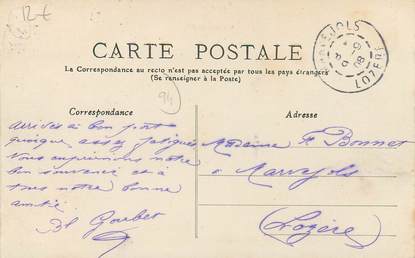 12-€
MARVEJOLS
9-6
08
LOZERE
CARTE POSTALE
La Correspondance au recto n'est pas acceptée par tous les pays étrangers
(Se renseigner à la Poste)
94
Correspondance
Adresse
arrivés à bon port
quoique assez fatigués
Vous
bon souvenir et à
tous notre bonne
amitié
Goubet
Madame F. Bonnet
à Marvejols
(Lozère)